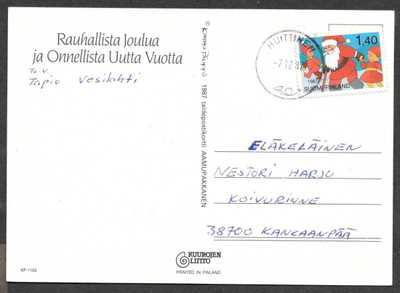 Rauhallista Joulua
ja Onnellista Uutta Vuotta
Toiv.
Tapio Vesilahti
1987 taidepostikortti AAMUPAKKANEN
HUITTINEN
-7.12.87
1,40
1987
SUOMI FINLAND
ELÄKELÄINEN
NESTORI HARJU
KOIVURINNE
38700 KANKAANPÄÄ
KUUROJEN
LIITTO
PRINTED IN FINLAND
KP-1155